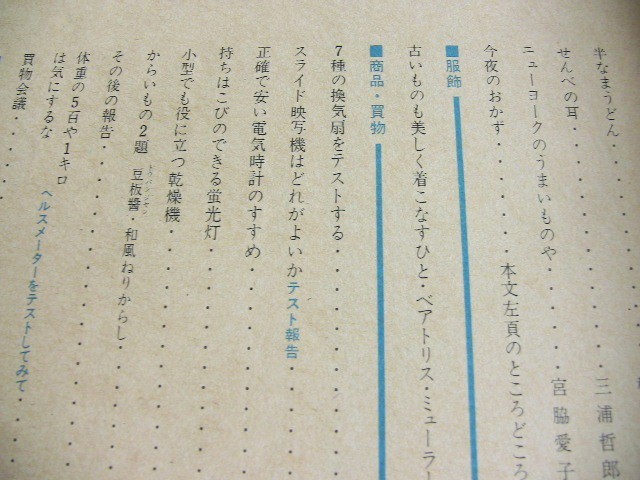 半なまうどん・・・・・・・・・三浦哲郎
せんべの耳・・・・・・・・・宮脇愛子
ニューヨークのうまいものや・・・・・・
今夜のおかず・・・・・・本文左頁のところどころ
■服飾
古いものも美しく着こなすひと・ベアトリス・ミューラー
■商品・買物
7種の換気扇をテストする・・・・・・・・・
スライド映写機はどれがよいかテスト報告・・・・
正確で安い電気時計のすすめ・・・・・・・・
持ちはこびのできる蛍光灯・・・・・・・・・
小型でも役に立つ乾燥機・・・・・・・・・・
からいもの2題 豆板醬・和風ねりからし・・・・
その後の報告・・・・・・・・・・・・
体重の5百や1キロは気にするな ヘルスメーターをテストしてみて・・・
買物会議・・・・・・・・・・・・